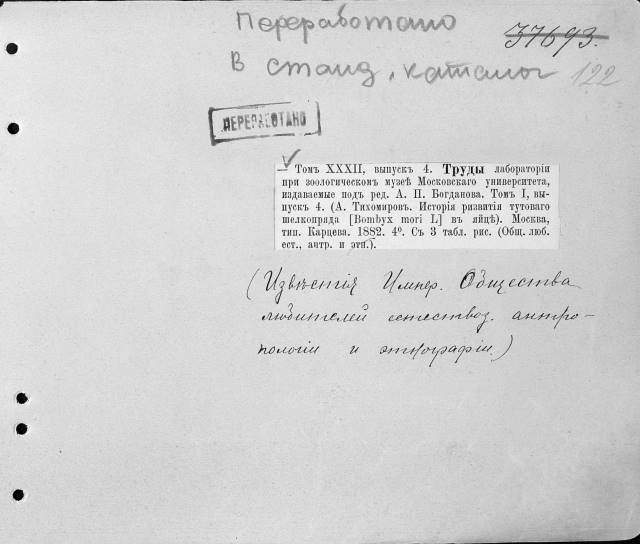 Переработано
37693.
В станд. каталог 122
ПЕРЕРАБОТАНО
— Томъ XXXII, выпускъ 4. Труды лабораторіи
при зоологическомъ музеѣ Московскаго университета,
издаваемые подъ ред. А. П. Богданова. Томъ I, вы-
пускъ 4. (А. Тихомировъ. Исторія развитія тутоваго
шелкопряда [Bombyx mori L] въ яйцѣ). Москва,
тип. Карцева. 1882. 4º. Съ 3 табл. рис. (Общ. люб.
ест., антр. и этн.).
(Извѣстія Импер. Общества
любителей естествоз. антро-
пологіи и этнографіи.)